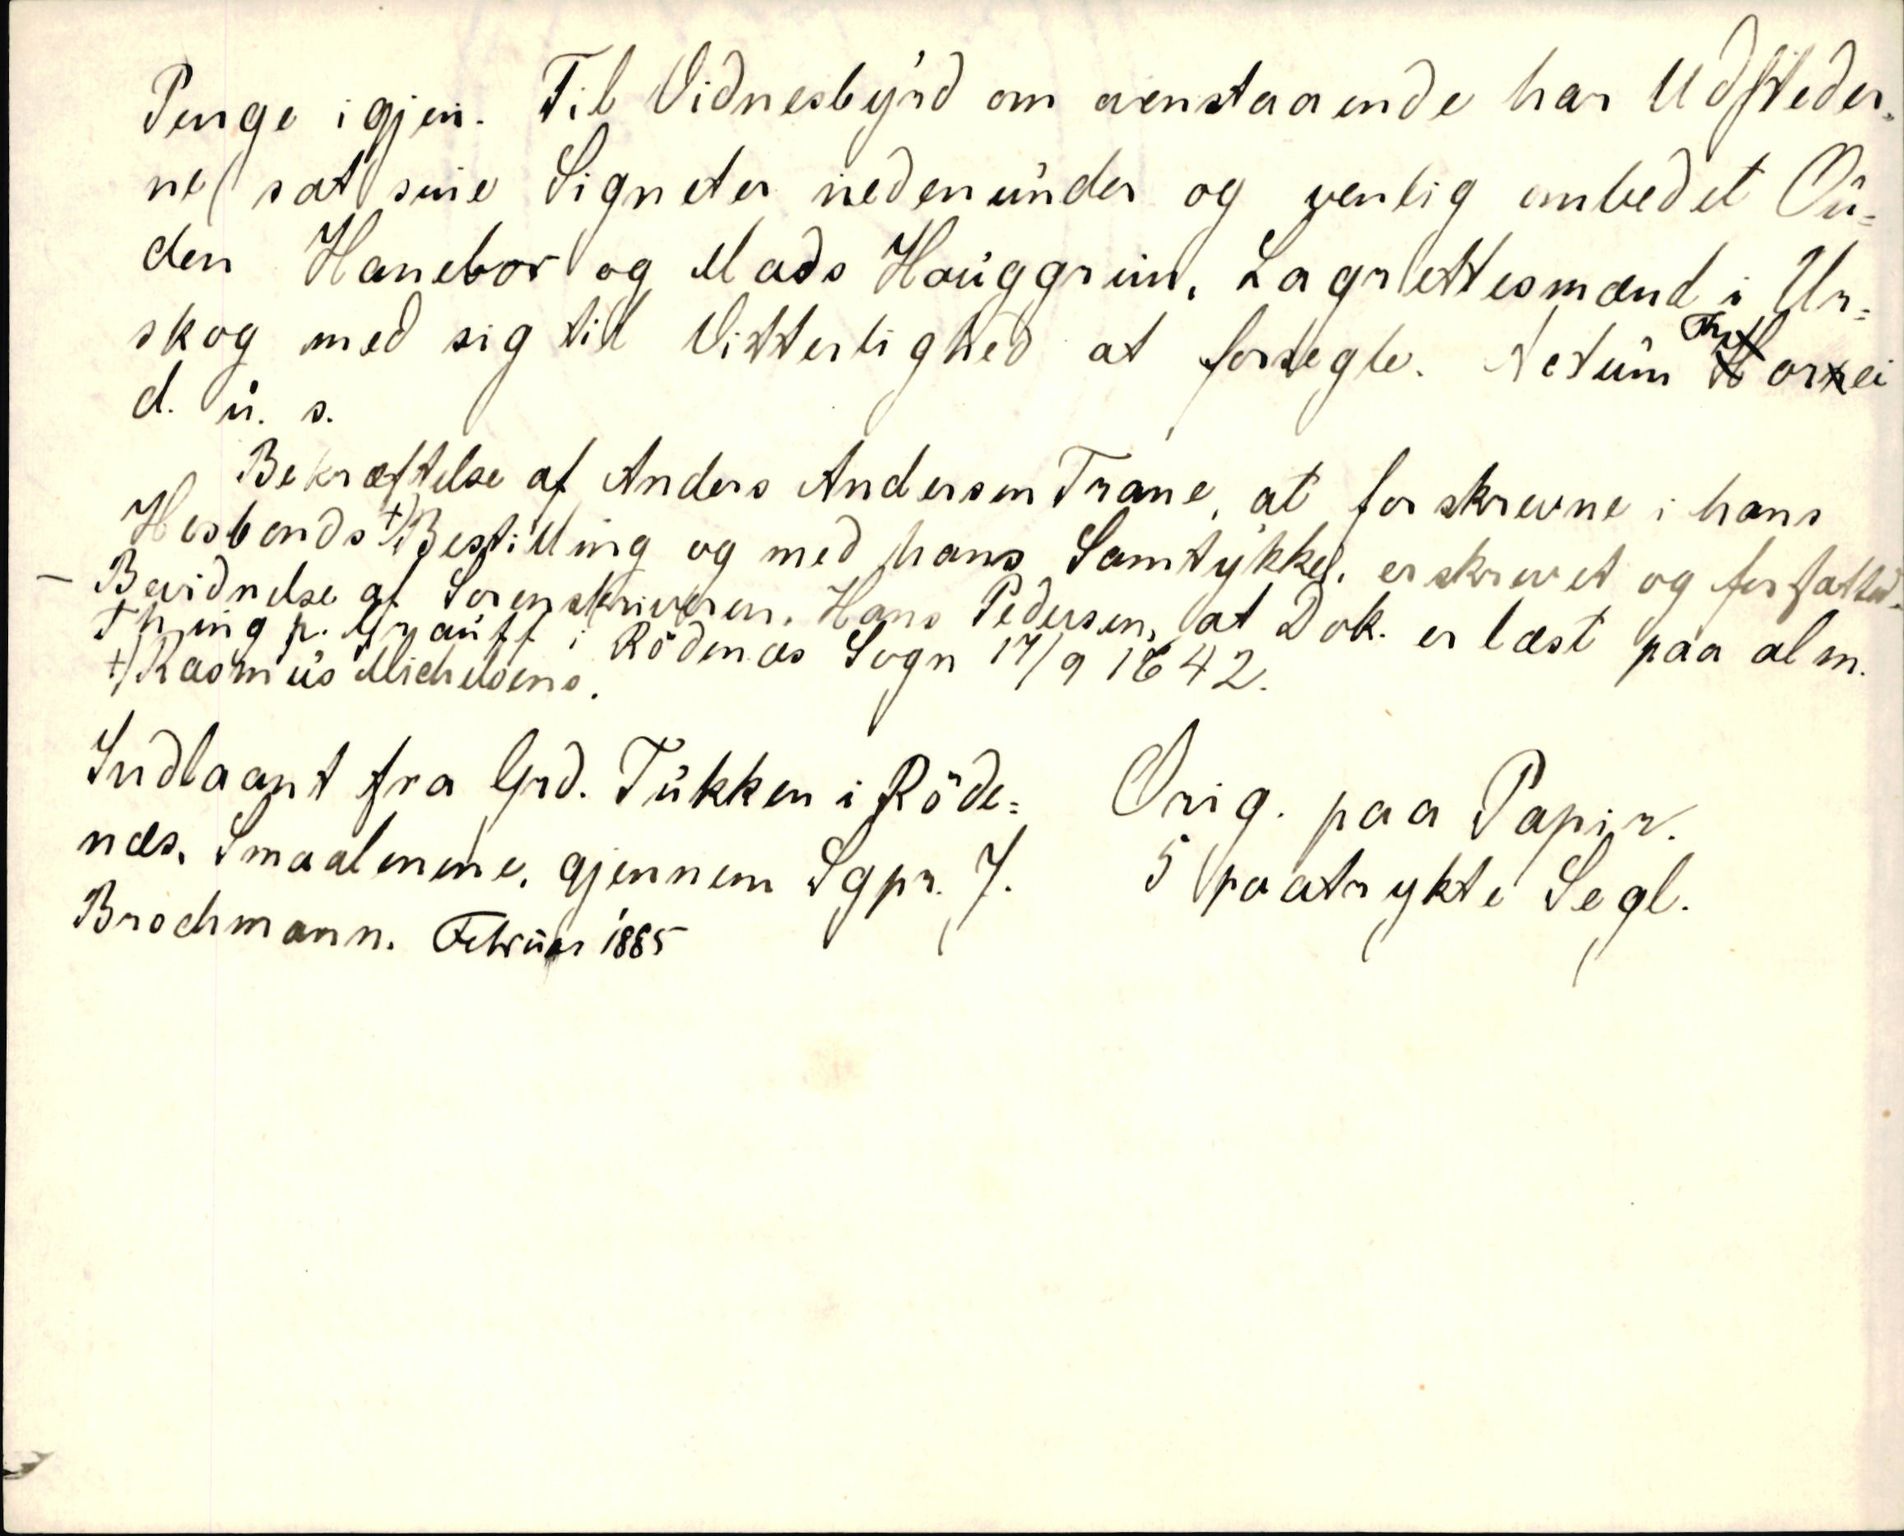 Penge igjen. Til Vidnesbyrd om ovenstaaende har Udsteder-
ne sat sine Signeter nedenunder og venlig ombedet Ou=
den Hanebor og Mads Hauggrim, Lagrettesmænd i Ur=
skog med sig til Vitterlighed at forsegle. Actum
d. u. s.
Bekræftelse af Anders Andersen Trane, at forskrevne i hans
Hosbonds +) Bestilling og med hans Samtykke, er skrevet og forfattet.
– Bevidnelse af Sorenskriveren, Hans Pedersen, at Dok. er læst paa alm.
Thing p. i Rödenæs Sogn 17/9 1642.
+) Rasmus Michelsens.
Indlaant fra Grd. Tükken i Röde=
næs, Smaalenene, gjennem Sgpr. J.
Brochmann. Februar 1885
Orig. paa Papir.
5 paatrykte Segl.